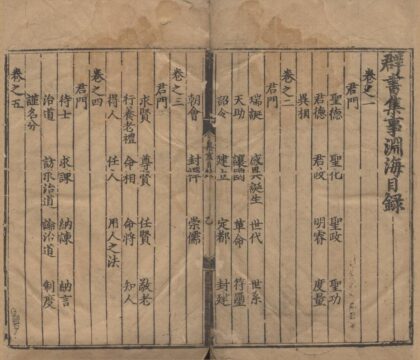 群書集事淵海目録
卷之一
君門
聖德 聖化 聖政 聖功
君德 君政 明睿 度量
異相
卷之二
君門
瑞誕 盛典誕生 世代 世系
天助 讓國 革命 符璽
詔令 建立 定都 封建
朝會 封禪 崇儒
卷之三
君門
求賢 尊賢 任賢 敬老
行養老禮 命相 命將 知人
得人 任人 用人之法
卷之四
君門
待士 求諫 納諫 納言
治道 訪求治道 論治道 制度
謹名分
卷之五